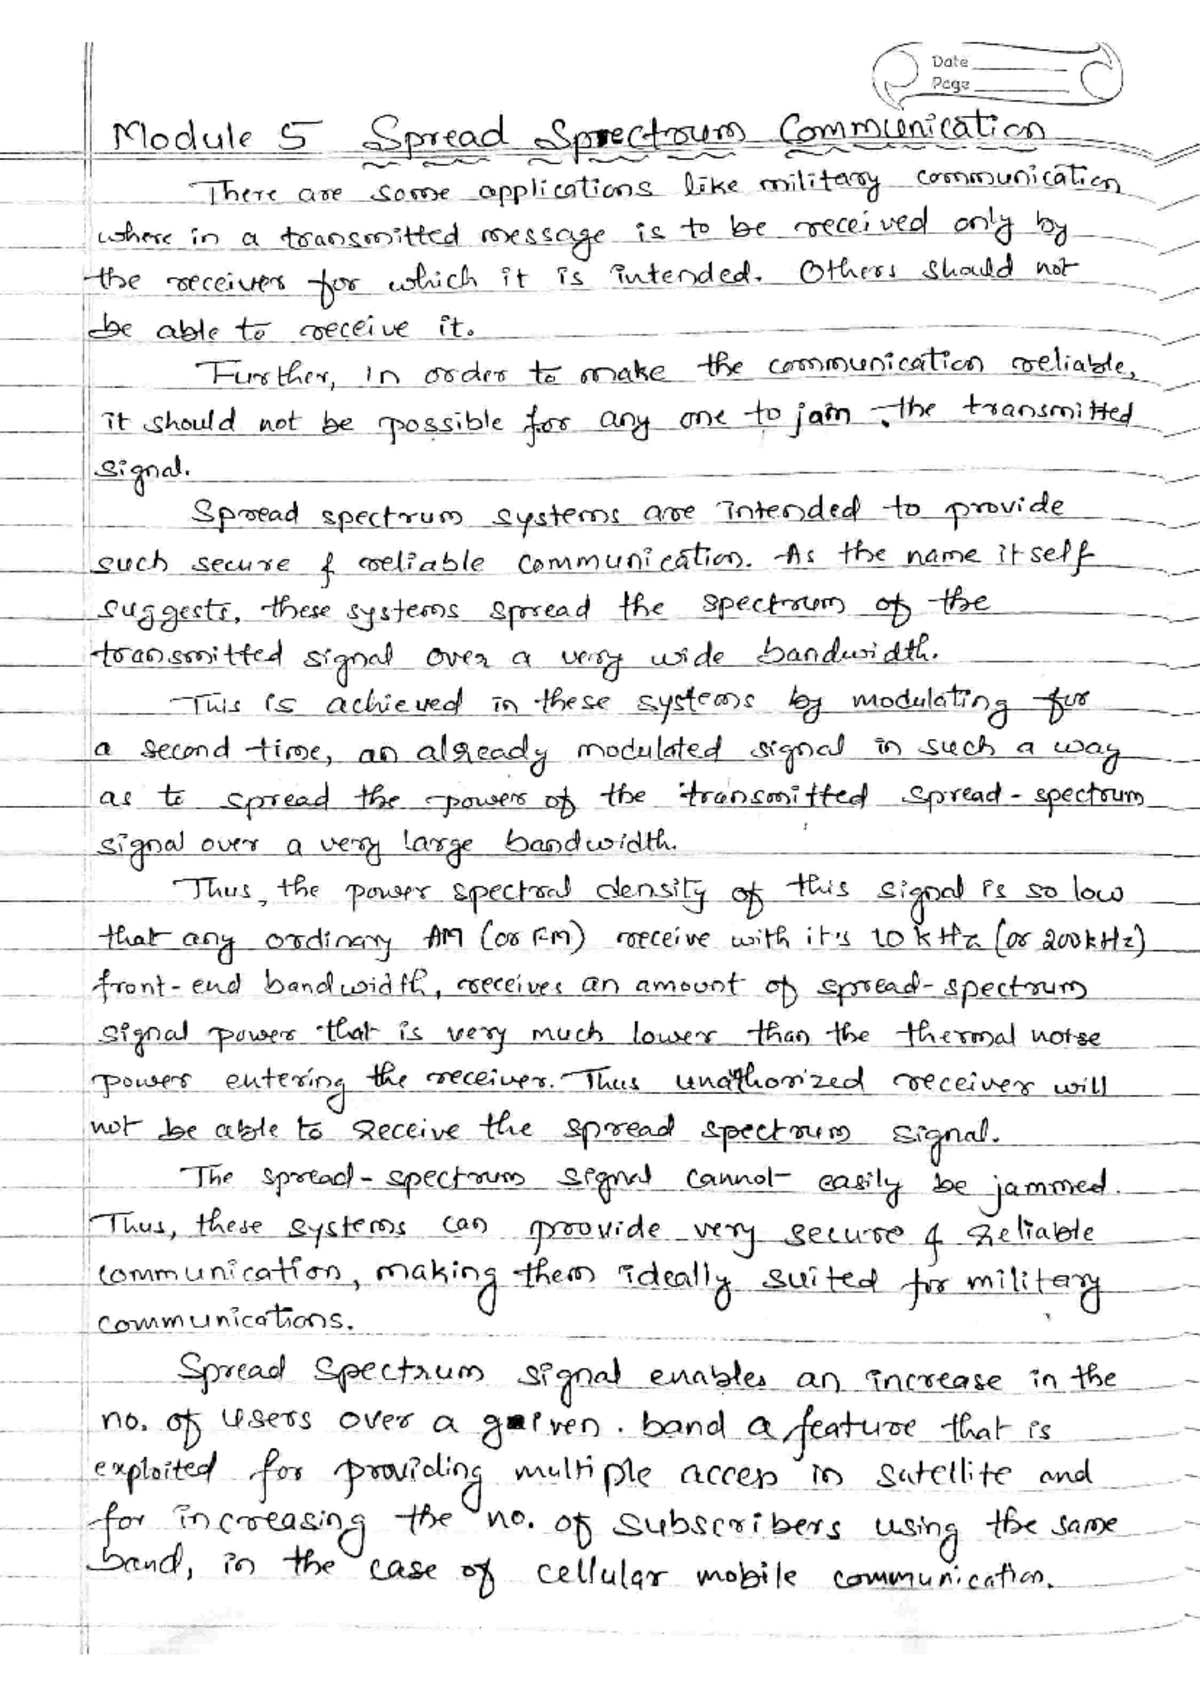 Date
Page
Module 5 Spread Spectrum Communication
There are some applications like military communication
where in a transmitted message is to be received only by
the receiver for which it is intended. Others should not
be able to receive it.
Further, in order to make the communication reliable,
it should not be possible for any one to jam the transmitted
signal.
Spread spectrum systems are intended to provide
such secure & reliable communication. As the name itself
suggests, these systems spread the spectrum of the
transmitted signal over a very wide bandwidth.
This is achieved in these systems by modulating for
a second time, an already modulated signal in such a way
as to spread the power of the transmitted spread-spectrum
signal over a very large bandwidth.
Thus, the power spectral density of this signal is so low
that any ordinary AM (or FM) receive with it's 10 kHz (or 200kHz)
front-end bandwidth, receives an amount of spread-spectrum
signal power that is very much lower than the thermal noise
power entering the receiver. Thus unauthorized receiver will
not be able to receive the spread spectrum signal.
The spread-spectrum signal cannot easily be jammed.
Thus, these systems can provide very secure & reliable
communication, making them ideally suited for military
communications.
Spread Spectrum signal enables an increase in the
no. of users over a given. band a feature that is
exploited for providing multiple access in satellite and
for increasing the no. of subscribers using the same
band, in the case of cellular mobile communication.